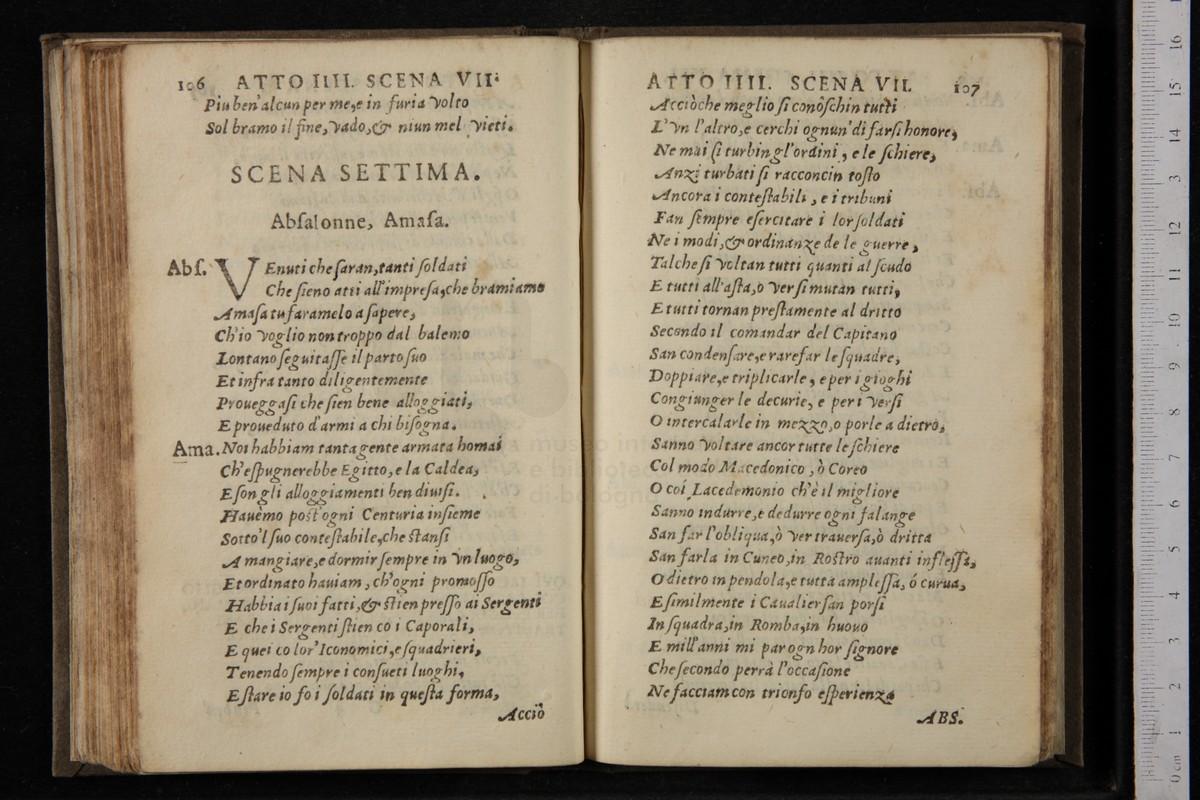 106 ATTO IIII. SCENA VII.
Piu ben'alcun per me,e in furia volto
Sol bramo il fine,vado,& niun mel vieti.
SCENA SETTIMA.
Abſalonne, Amaſa.
Abſ. VEnuti che ſaran,tanti ſoldati
Che ſieno atti all'impreſa,che bramiamo
Amaſa tu faramelo a ſapere,
Ch'io voglio non troppo dal baleno
Lontano ſeguitaſſe il parto ſuo
Et infra tanto diligentemente
Proueggaſi che ſien bene alloggiati,
E proueduto d'armi a chi biſogna.
Ama. Noi habbiam tanta gente armata homai
Ch'eſpugnerebbe Egitto,e la Caldea,
E ſon gli alloggiamenti ben diuiſi.
Hauemo poſt'ogni Centuria inſieme
Sotto'l ſuo conteſtabile,che ſtanſi
A mangiare,e dormir ſempre in vn luogo,
Et ordinato hauiam, ch'ogni promoſſo
Habbia i ſuoi fatti,& ſtien preſſo ai Sergenti
E che i Sergenti ſtien co i Caporali,
E quei co lor'Iconomici,e ſquadrieri,
Tenendo ſempre i conſueti luoghi,
E ſtare io fo i ſoldati in queſta forma,
Acciò
ATTO IIII. SCENA VII. 107
Acciòche meglio ſi conoſchin tutti
L'vn l'altro,e cerchi ognun'di farſi honore,
Ne mai ſi turbin gl'ordini, e le ſchiere,
Anzi turbati ſi racconcin toſto
Ancora i conteſtabili, e i tribuni
Fan ſempre eſercitare i lor ſoldati
Ne i modi,& ordinanze de le guerre,
Talche ſi voltan tutti quanti al ſcudo
E tutti all'aſta,o verſi mutan tutti,
E tutti tornan preſtamente al dritto
Secondo il comandar del Capitano
San condenſare,e rarefar le ſquadre,
Doppiare,e triplicarle, e per i gioghi
Congiunger le decurie, e per i verſi
O intercalarle in mezzo,o porle a dietro,
Sanno voltare ancor tutte le ſchiere
Col modo Macedonico, ò Coreo
O coí Lacedemonio ch'è il migliore
Sanno indurre,e dedurre ogni falange
San far l'obliqua,ò ver trauerſa,ò dritta
San farla in Cuneo,in Roſtro auanti infleſſi,
O dietro in pendola,e tutta ampleſſa, ó curua,
E ſimilmente i Caualier ſan porſi
In ſquadra,in Romba,in huouo
E mill'anni mi par ogn hor ſignore
Che ſecondo perrà l'occaſione
Ne facciam con trionfo eſperienza
ABS.